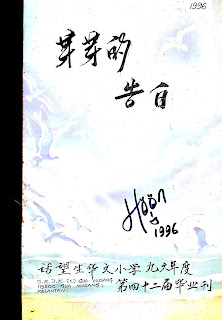 1996
芽芽的
告白
1996
话望生华文小学九六年度
S.R.J.K (C) GUA MUSANG
18300 GUA MUSANG
KELANTAN
第四十二届毕业刊